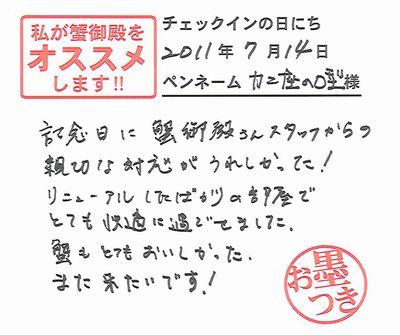 私が蟹御殿を
オススメ
します!!
チェックインの日にち
2011年7月14日
ペンネーム カニ座のO型様
記念日に蟹御殿さんスタッフからの
親切な対応がうれしかった!
リニューアルしたばかりの部屋で
とても快適に過ごせました。
蟹もとてもおいしかった。
また来たいです!
お墨つき